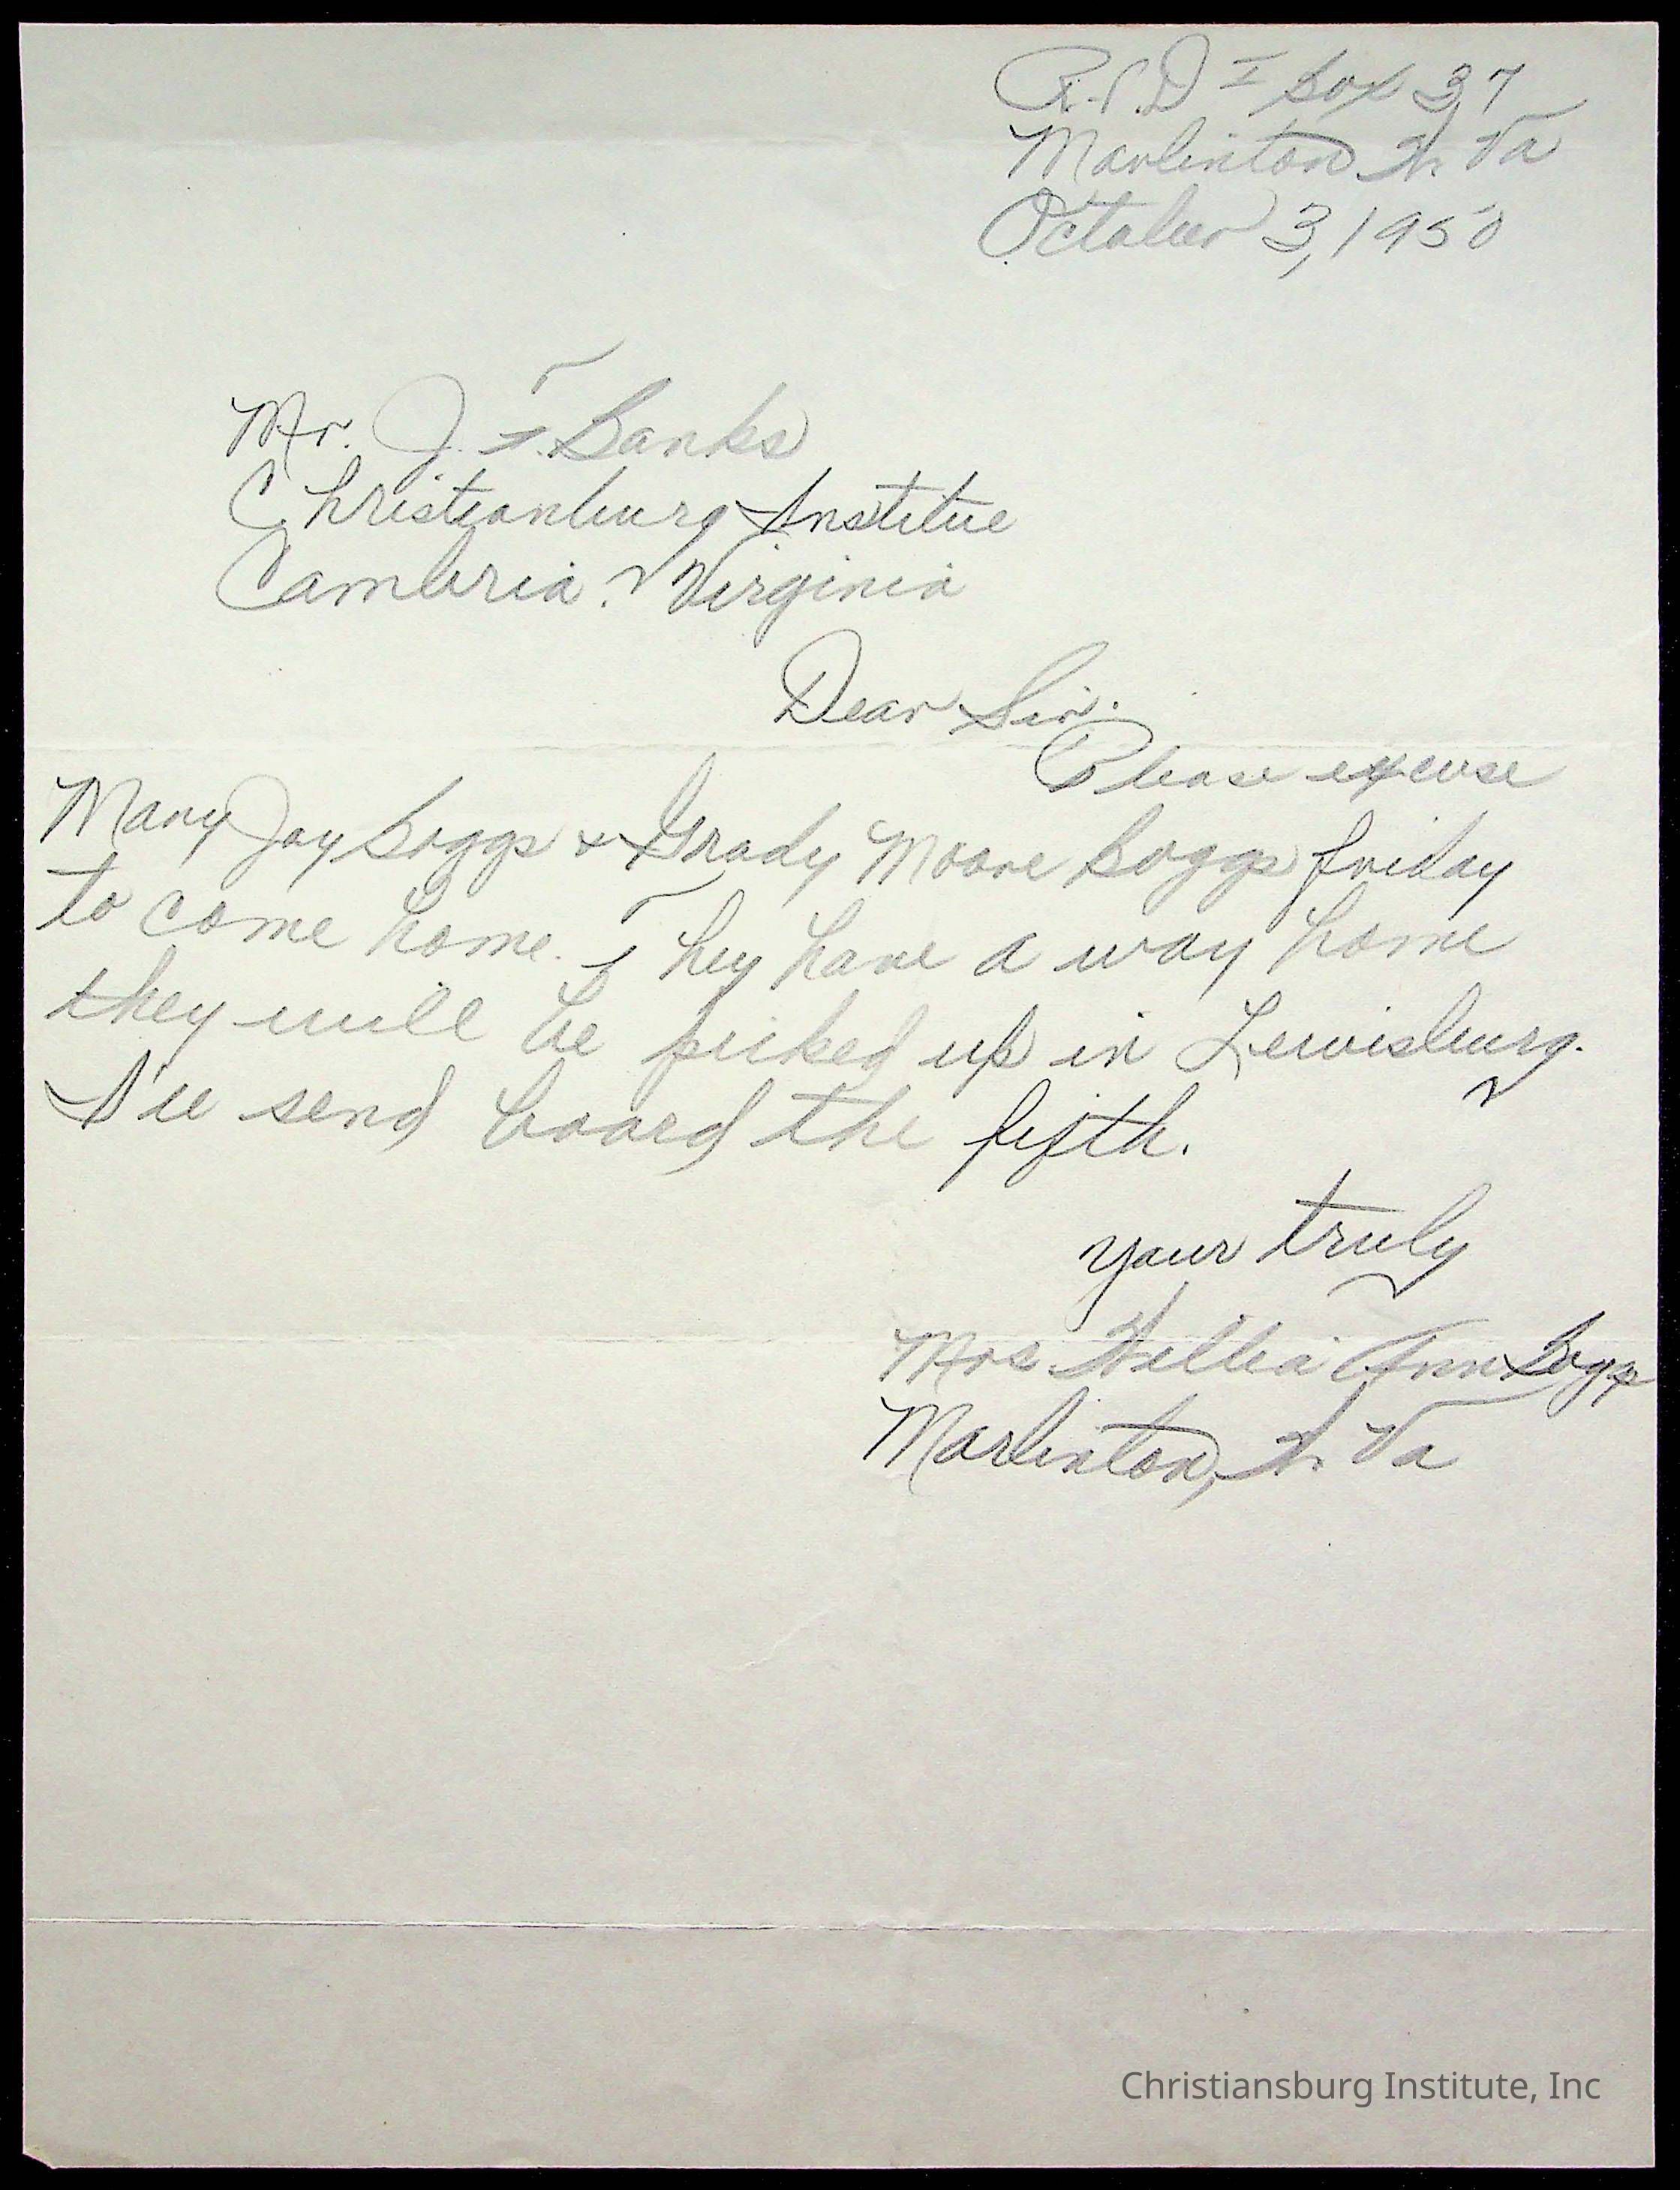 R.F.D I Box 37
Marlinton W. Va
October 3, 1950
Mr. J. F. Banks
Christianburg Institue
Cambria. Virginia
Dear Sir.
Please excuse
Mary Jay Boggs & Grady Moore Boggs friday
to come home. They have a way home
they will be picked up in Lewisburg.
I'll send board the fifth.
your truly
Mrs Ann Boggs
Marlinton, W. Va
Christiansburg Institute, Inc